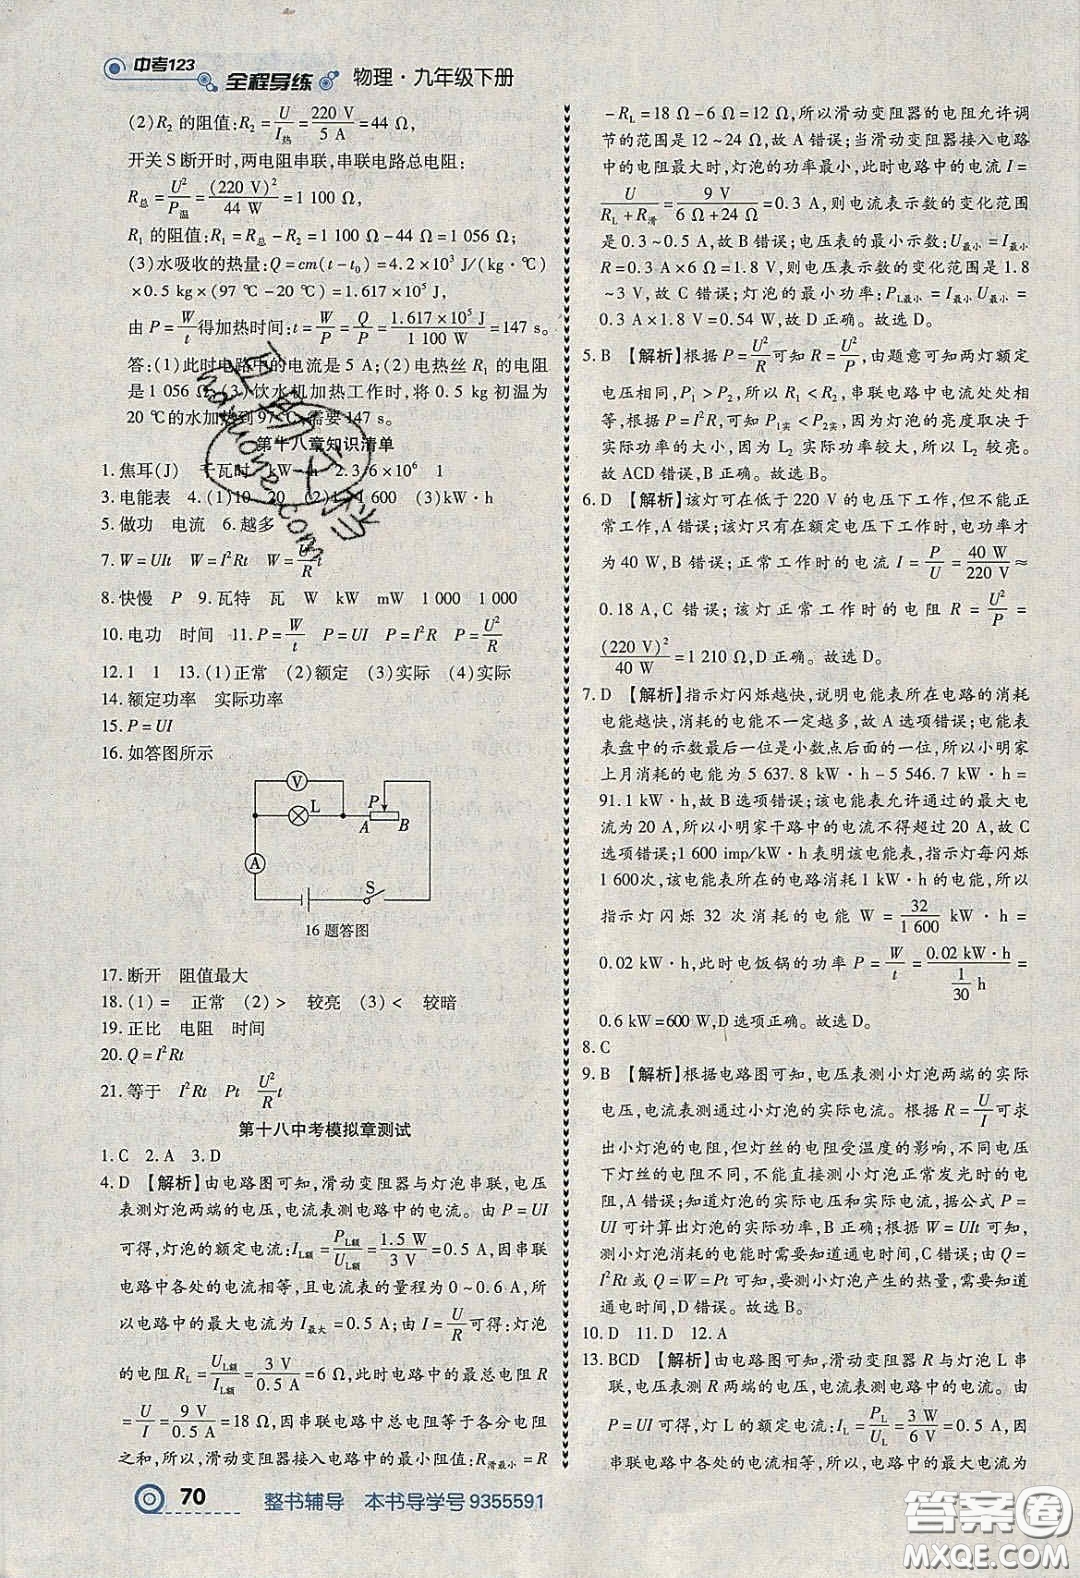 中考123
全程导练
物理·九年级下册
(2)R₂ 的阻值:R₂=U/I热=220 V/5 A=44 Ω,
开关 S 断开时,两电阻串联,串联电路总电阻:
R总=U²/P温=(220 V)²/44 W=1 100 Ω,
R₁ 的阻值:R₁=R总-R₂=1 100 Ω-44 Ω=1 056 Ω;
(3)水吸收的热量:Q=cm(t-t₀)=4.2×10³ J/(kg·℃)
×0.5 kg×(97 ℃-20 ℃)=1.617×10⁵ J,
由 P=W/t得加热时间:t=W/P=Q/P=1.617×10⁵ J/1 100 W=147 s。
答:(1)此时电路中的电流是 5 A;(2)电热丝 R₁ 的电阻
是 1 056 Ω;(3)饮水机加热工作时,将 0.5 kg 初温为
20 ℃的水加热到 97 ℃,需要 147 s。
第十八章知识清单
1.焦耳(J) 千瓦时 kW·h 2.3.6×10⁶ 1
3.电能表 4.(1)10 20 (2)1 1 600 (3)kW·h
5.做功 电流 6.越多
7.W=UIt W=I²Rt W=U²/R t
8.快慢 P 9.瓦特 瓦 W kW mW 1 000 1 000
10.电功 时间 11.P=W/t P=UI P=I²R P=U²/R
12.1 1 13.(1)正常 (2)额定 (3)实际 (4)实际
14.额定功率 实际功率
15.P=UI
16.如答图所示
V
L
P
A
B
A
S
16 题答图
17.断开 阻值最大
18.(1)= 正常 (2)> 较亮 (3)< 较暗
19.正比 电阻 时间
20.Q=I²Rt
21.等于 I²Rt Pt U²/R t
第十八中考模拟章测试
1.C 2.A 3.D
4.D 【解析】由电路图可知,滑动变阻器与灯泡串联,电压
表测灯泡两端的电压,电流表测电路中的电流。由 P=UI
可得,灯泡的额定电流:IL额=PL额/UL额=1.5 W/3 V=0.5 A,因串联
电路中各处的电流相等,且电流表的量程为 0~0.6 A,所
以电路中的最大电流 I最大=0.5 A;由 I=U/R可得:灯泡
的电阻 RL=UL额/IL额=3 V/0.5 A=6 Ω,此时电路中的最小总电阻 R
=U/I=9 V/0.5 A=18 Ω,因串联电路中总电阻等于各分电阻
之和,所以,滑动变阻器接入电路中的最小阻值:R滑最小=R
-RL=18 Ω-6 Ω=12 Ω,所以滑动变阻器的电阻允许调
节的范围是 12~24 Ω,故 A 错误;当滑动变阻器接入电路
中的电阻最大时,灯泡的功率最小,此时电路中的电流 I=
U/(RL+R滑)=9 V/(6 Ω+24 Ω)=0.3 A,则电流表示数的变化范围
是 0.3~0.5 A,故 B 错误;电压表的最小示数:U最小=I最小RL
=0.3 A×6 Ω=1.8 V,则电压表示数的变化范围是 1.8
~3 V,故 C 错误;灯泡的最小功率:PL最小=I最小U最小=
0.3 A×1.8 V=0.54 W,故 D 正确。故选 D。
5.B 【解析】根据 P=U²/R可知 R=U²/P,由题意可知两灯额定
电压相同,P₁>P₂,所以 R₁<R₂,串联电路中电流处处相
等,根据 P=I²R 可知 P1实<P2实,因为灯泡的亮度取决于
实际功率的大小,因为 L₂ 实际功率较大,所以 L₂ 较亮。
故 ACD 错误,B 正确。故选 B。
6.D 【解析】该灯可在低于 220 V 的电压下工作,但不能正
常工作,A 错误;该灯只有在额定电压下工作时,电功率才
为 40 W,B 错误;正常工作时的电流 I=P/U=40 W/220 V≈
0.18 A,C 错误;该灯正常工作时的电阻 R=U²/P=
(220 V)²/40 W=1 210 Ω,D 正确。故选 D。
7.D 【解析】指示灯闪烁越快,说明电能表所在电路的消耗
电能越快,消耗的电能不一定越多,故 A 选项错误;电能表
表盘中的示数最后一位是小数点后面的一位,所以小明家
上月消耗的电能为 5 637.8 kW·h-5 546.7 kW·h=
91.1 kW·h,故 B 选项错误;该电能表允许通过的最大电
流为 20 A,所以小明家干路中的电流不得超过 20 A,故 C
选项错误;1 600 imp/kW·h 表明该电能表,指示灯每闪烁
1 600次,该电能表所在的电路消耗 1 kW·h 的电能,所以
指示灯闪烁 32 次消耗的电能 W=32/1 600 kW·h=
0.02 kW·h,此时电饭锅的功率 P=W/t=0.02 kW·h/(1/30 h)=
0.6 kW=600 W,D 选项正确。故选 D。
8.C
9.B 【解析】根据电路图可知,电压表测小灯泡两端的实际
电压,电流表测通过小灯泡的实际电流。根据 R=U/I可求
出小灯泡的电阻,因灯丝的电阻受温度的影响,不同电压
下灯丝的电阻不同,不能直接测小灯泡正常发光时的电
阻,A 错误;知道灯泡的实际电压和实际电流,据公式 P=
UI 可计算出灯泡的实际功率,B 正确;根据 W=UIt 可知,
测小灯泡消耗的电能时需要知道通电时间,C 错误;由 Q=
I²Rt 或 Q=W=Pt 可知,要测小灯泡产生的热量,需要知道
通电时间,D 错误。故选 B。
10.D 11.D 12.A
13.BCD 【解析】由电路图可知,滑动变阻器 R 与灯泡 L 串
联,电压表测 R 两端的电压,电流表测电路中的电流。由
P=UI 可得,灯 L 的额定电流:IL=PL/UL=3 W/6 V=0.5 A,因
串联电路中各处的电流相等,所以,电路中的最大电流为
70
整书辅导 本书导学号 9355591
答案圈
MXQE.COM